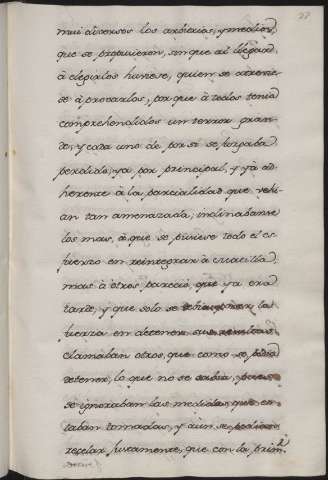 mui diversos los arbitrios, y medios,
que se propusieron, sin que al llegar
à elegirlos huviese, quien se atrevie-
se à provarlos, por que à todos tenia
comprehendidos un terror gran-
de, y cada uno de por sì se juzgaba
perdido, ya por principal, y yà ad-
herente à la parcialidad que vehi-
an tan amenazada, inclinabanse
los mas, à que se pusiese todo el es-
fuerzo en reintegrar à
mas à otros pareciò, que ya era
tarde, y que solo se la
fuerza en detener sus
clamaban otros, que como se podia
detener, lo que no se sabia, pues
se ignoraban las medidas, que es-
taban tomadas, y aùn se podian
rezelar justamente, que con la prim.ª